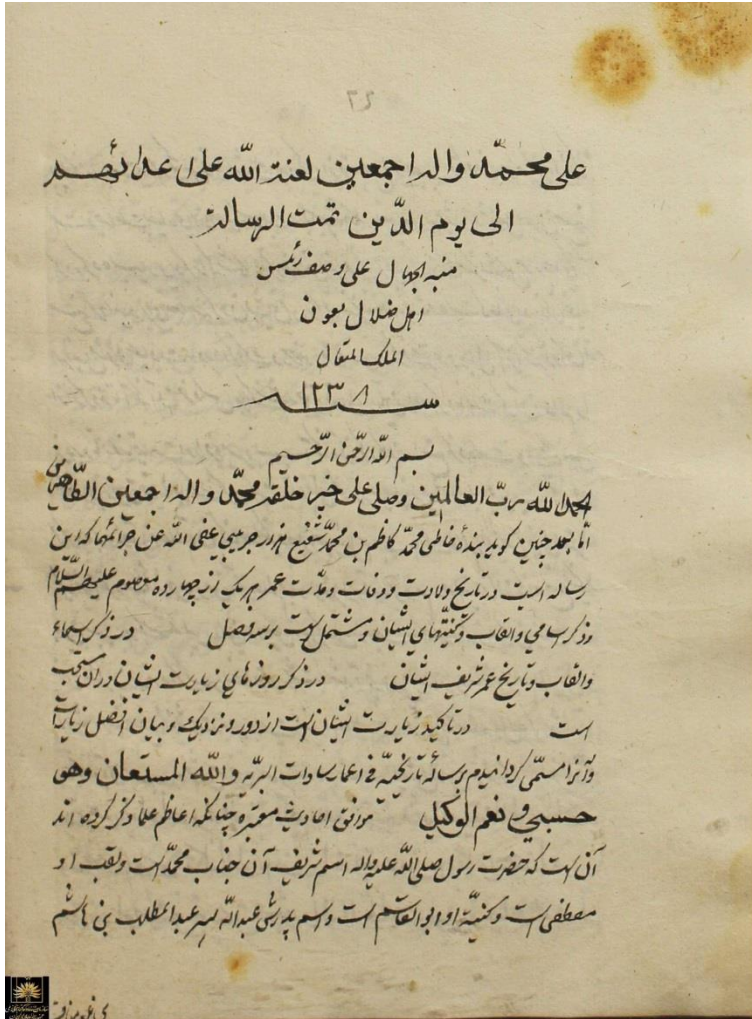 على محمّد واله اجمعين لعنة اللّه على اعدائهم
الى يوم الدّين تمت الرسالة
منبه الجهال على وصف رئيس
اهل ضلال بعون
الملك المتعال
سنه ١٢٣٨
بسم اللّه الرّحمن الرّحيم
الحمد للّه ربّ العالمين وصلى على خير خلقه محمّد واله اجمعين الطّاهرين
امّا بعد چنين كويد بندهٔ خاطى محمّد كاظم بن محمّد شفيع هزار جريبى عفى اللّه عن جرائمهما كه اين
رساله ايست در تاريخ ولادت ووفات ومدّت عمر هر يك از چهارده معصوم عليهم السّلام
وذكر اسامي والقاب وكنيّتهاى ايشان ومشتمل است بر سه فصل در ذكر اسماء
والقاب وتاريخ عمر شريف ايشان در ذكر روزهاي زيارت ايشان دران مستحب
است در تاكيد زيارت ايشان است از دور ونزديك وبيان افضل زيارات
وآنرا مسمّى كردانيدم برسالهٔ تاريخيّه فى اعمار سادات البريّه واللّه المستعان وهو
حسبي ونعم الوكيل موافق احاديث معتبره چنانكه اعاظم علما ذكر كرده اند
آن است كه حضرت رسول صلى اللّه عليه واله اسم شريف آن جناب محمّد است ولقب او
مصطفى است وكنيّة او ابو القاسم است واسم پدرش عبد اللّه پسر عبد المطلب بنى هاشم